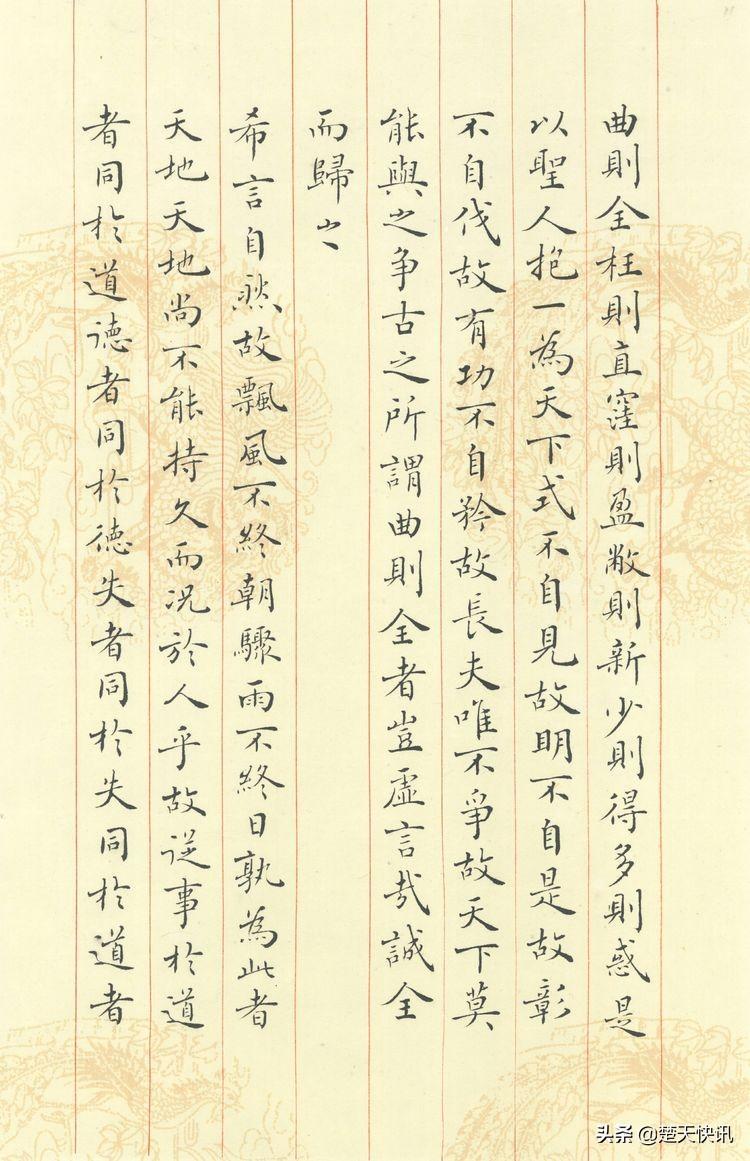 曲則全枉則直窪則盈敝則新少則得多則惑是
以聖人抱一為天下式不自見故明不自是故彰
不自伐故有功不自矜故長夫唯不爭故天下莫
能與之争古之所謂曲則全者豈虛言哉誠全
而歸之
希言自然故飄風不終朝驟雨不終日孰為此者
天地天地尚不能持久而況於人乎故從事於道
者同於道德者同於德失者同於失同於道者
头条 @楚天快讯